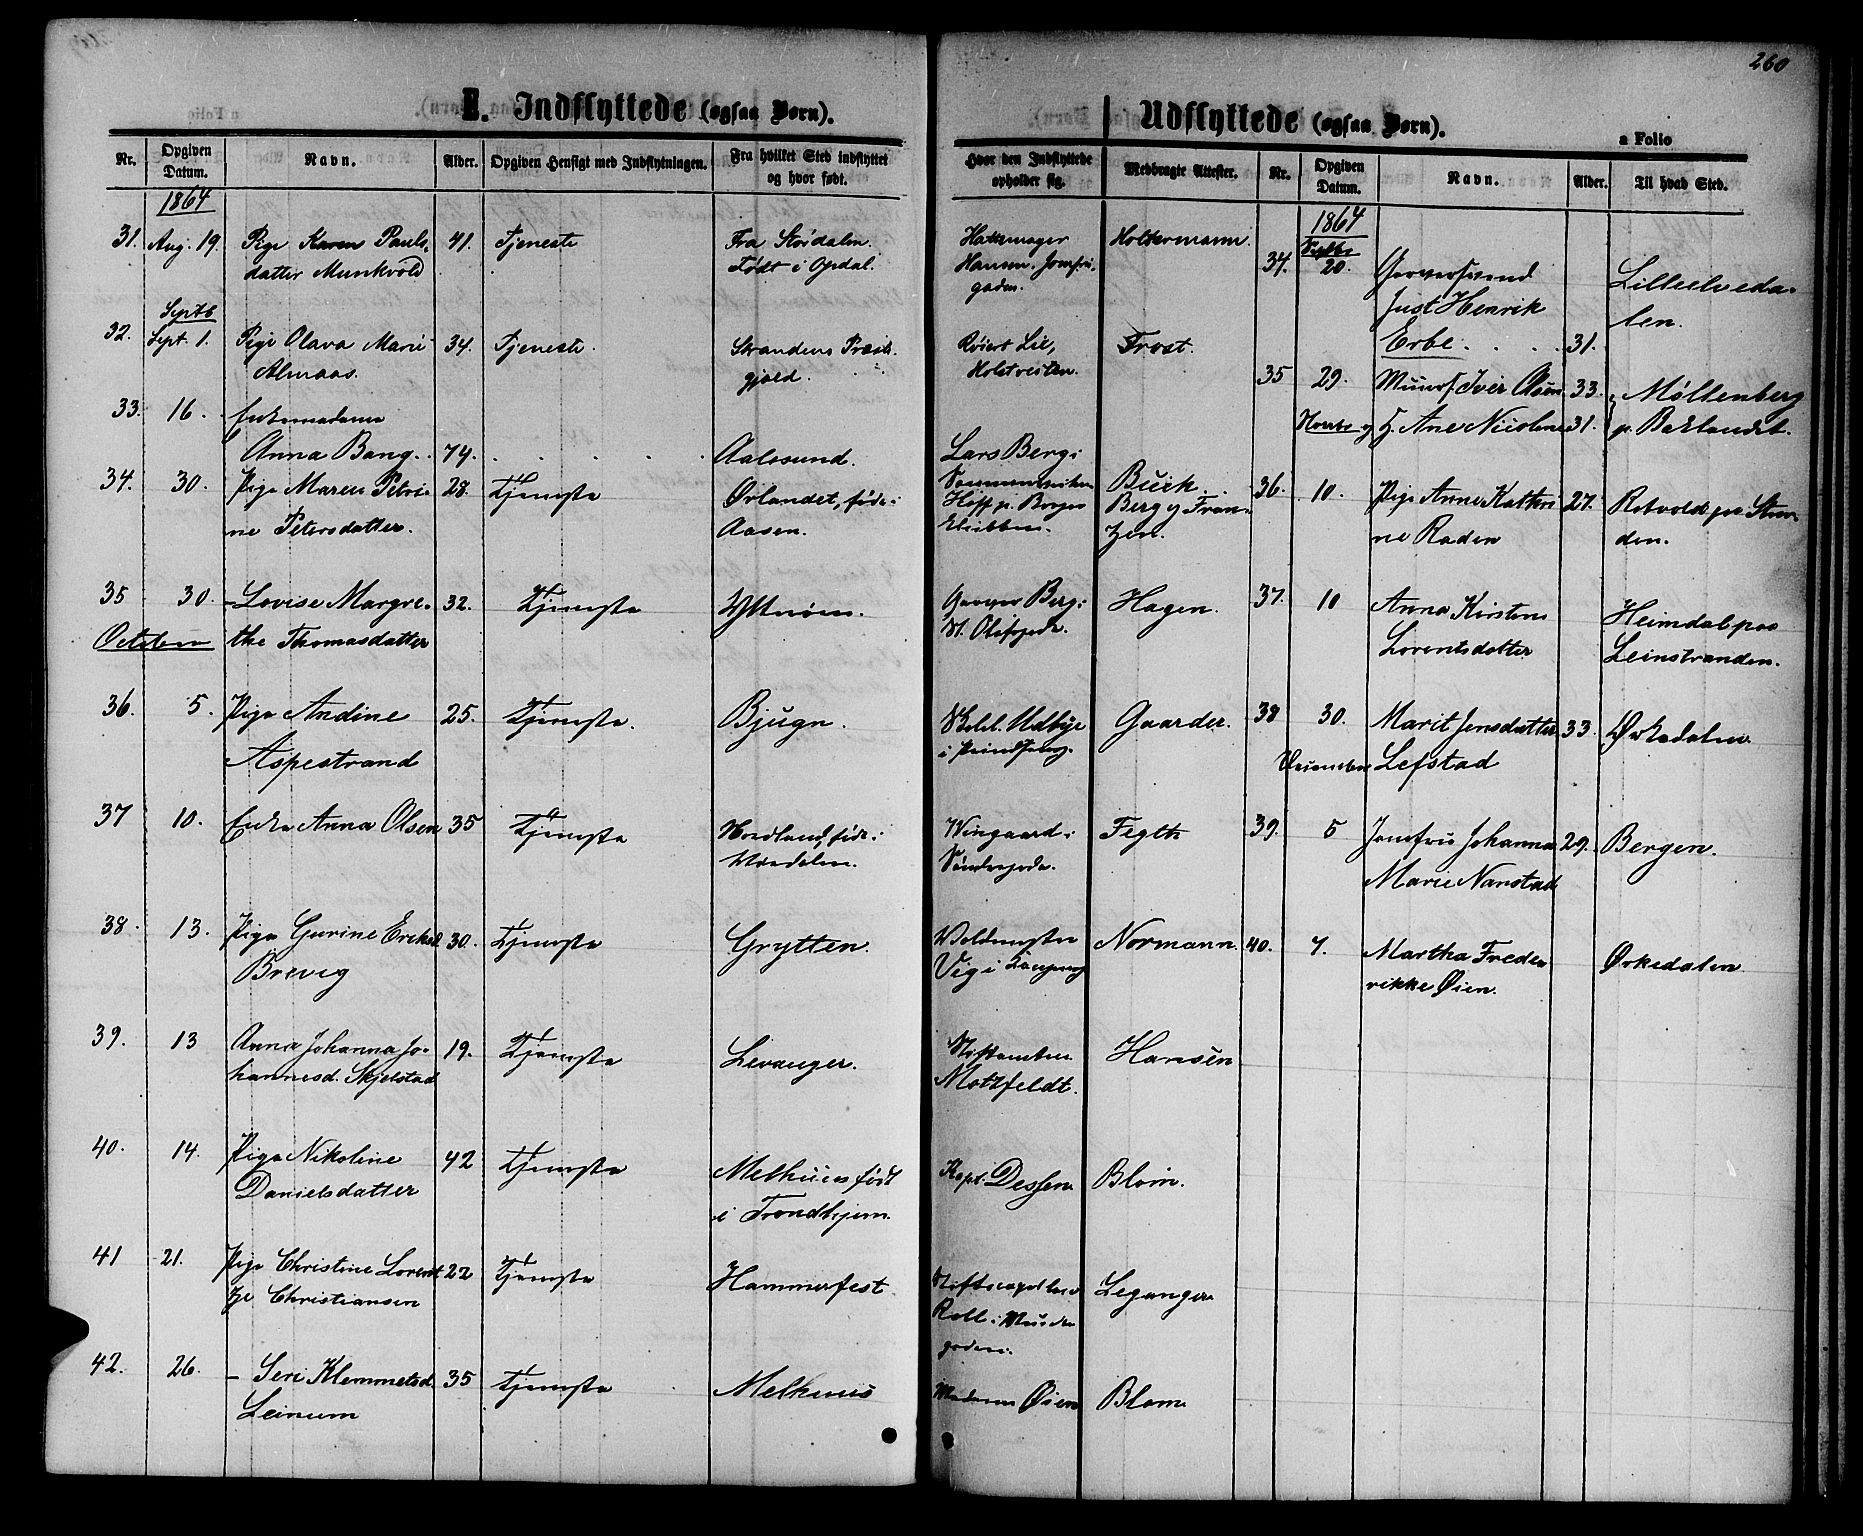 E. Indflyttede (ogsaa Børn).
Nr. Opgiven Datum. Navn. Alder. Opgiven Hensigt med Indflytningen. Fra hvilket Sted indflyttet og hvor født.
1864
31. Aug. 19. Pige Karen Pauls- 41. Tjeneste Fra Størdalen.
datter Munkvold Født i Opdal.
Septb
32. Sept. 1. Pige Olava Marie 34. Tjeneste. Strandens Præste-
Almaas. gjæld.
33. 16. Enkemadame
Anna Bang. 74. Aalesund.
34. 30. Pige Maren Petri- 28. Tjeneste Ørlandet, født i
ne Petersdatter. Aasen.
35 30. - Lovise Margre- 32. Tjeneste Ytterøen.
October the Thomasdatter
36. 5. Pige Andine 25. Tjeneste. Bjugn.
Aspestrand
37 10. Enke Anna Olsen 35 Tjeneste Nordland, født i
Værdalen.
38. 13. Pige Gurine Eriksd. 30. Tjeneste Grytten.
Brevig
39. 13 Anna Johanna Jo- 19. Tjeneste Levanger.
hannesd. Skjelstad
40. 14. Pige Nikoline 42 Tjeneste Melhuus født
Danielsdatter i Trondhjem.
41 21. Pige Christine Lorent- 22 Tjeneste Hammerfest
ze Christiansen
42. 26. - Seri Klemmetsd. 35 Tjeneste Melhuus
Leinum
260
Udflyttede (ogsaa Børn).
a Folio
Hvor den Indflyttede opholder sig. Medbragte Attester. Nr. Opgiven Datum. Navn. Alder. Til hvad Sted.
1864
Hattemager Holtermann.
Hansen, Jomfru-
gaden.
34. Septbr 20. Garversvend Lilleelveda-
Just Henrik len.
Erbe. 31.
Lie, Frost.
35 29. Iver Olsen 33. Møllenberg
Novbr. Ane Nicoline 31. p. Baklandet.
Lars Berg i
Buck
Hoff p. Berg og Fran-
zen.
36. 10. Pige Anne Kathri- 27. Rotvold pr. Stran-
ne Raden den.
Garver Berg i Hagen. 37. 10 Anna Kirstine Heimdal paa
St. Olafsgade. Lorentsdatter Leinstranden.
Udbye Gaarder. 38 30. Marit Jensdatter 33. Ørkedalen
i Lefstad
Wingaard i Fegth 39. 5 Jomfru Johanna 29. Bergen.
Søndregade. Marie Nanstad
Normann. 40. 7. Martha Frede- Ørkedalen
Vig i rikke Øien.
Stiftamtm. Hansen
Motzfeldt.
Kapt. Dessen Blom.
Leganger
Roll i Munke-
gaden.
Madame Øien Blom